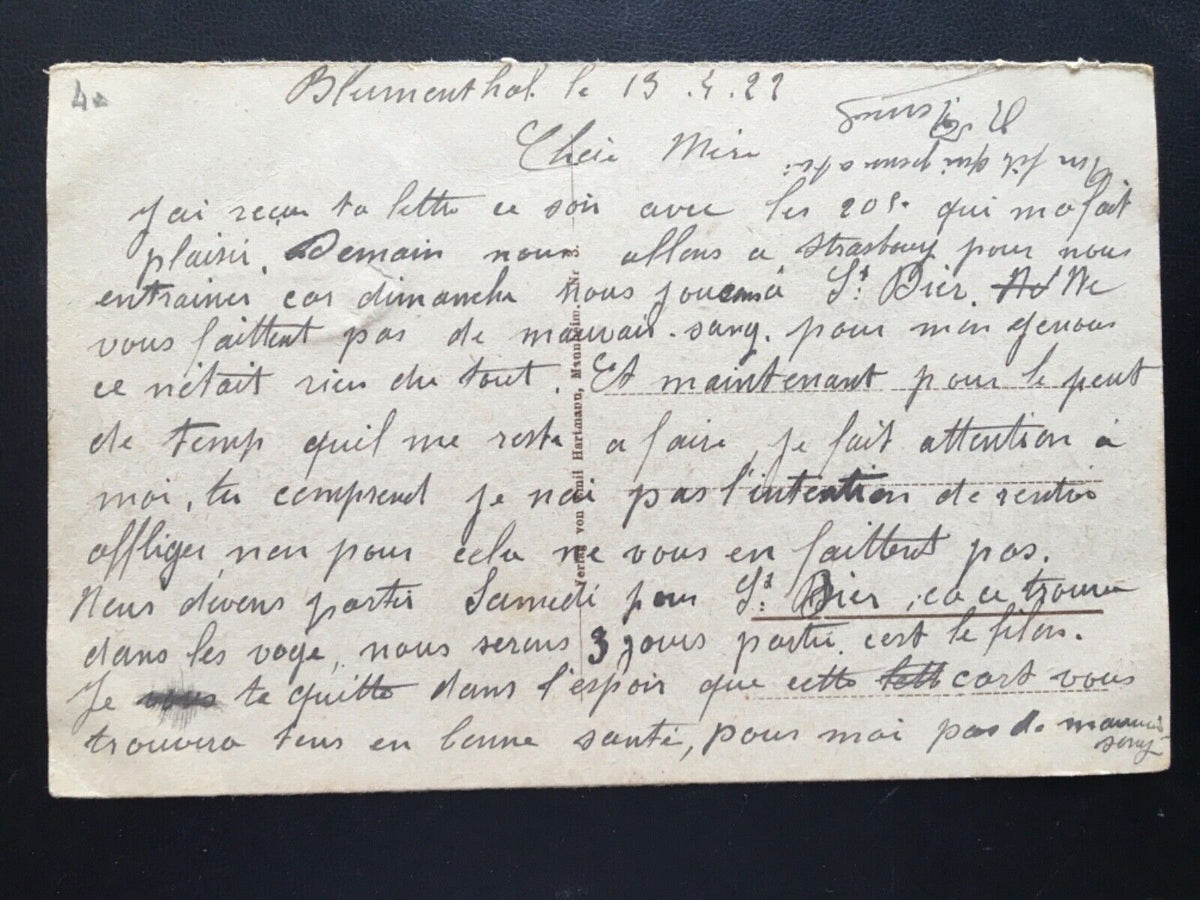 4
Blumenthal le 13.4.22
Chère Mère
J'ai reçu ta lettre ce soir avec les 20f. qui m'a fait
plaisir. Demain nous allons a Strasbourg pour nous
entrainer car dimanche nous jouons à St Dier. Ne
vous faittent pas de mauvais sang. pour mon genous
ce n'était rien du tout. Et maintenant pour le peut
de temp quil me reste a faire, je fait attention à
moi, tu comprend je nai pas l'intention de rentré
affliger, non pour cela ne vous en faittent pas.
Nous devons partir Samedi pour St Dier, ca ce trouve
dans les voge, nous serons 3 jours partie. cest le filon.
Je vous te quitte dans l'espoir que cette lett cart vous
trouvera tous en bonne santé, pour moi pas de mauvais
sang
Un fils qui pense a toi
Verlag von Emil Hartmann, Mannheim. Nr. 3.